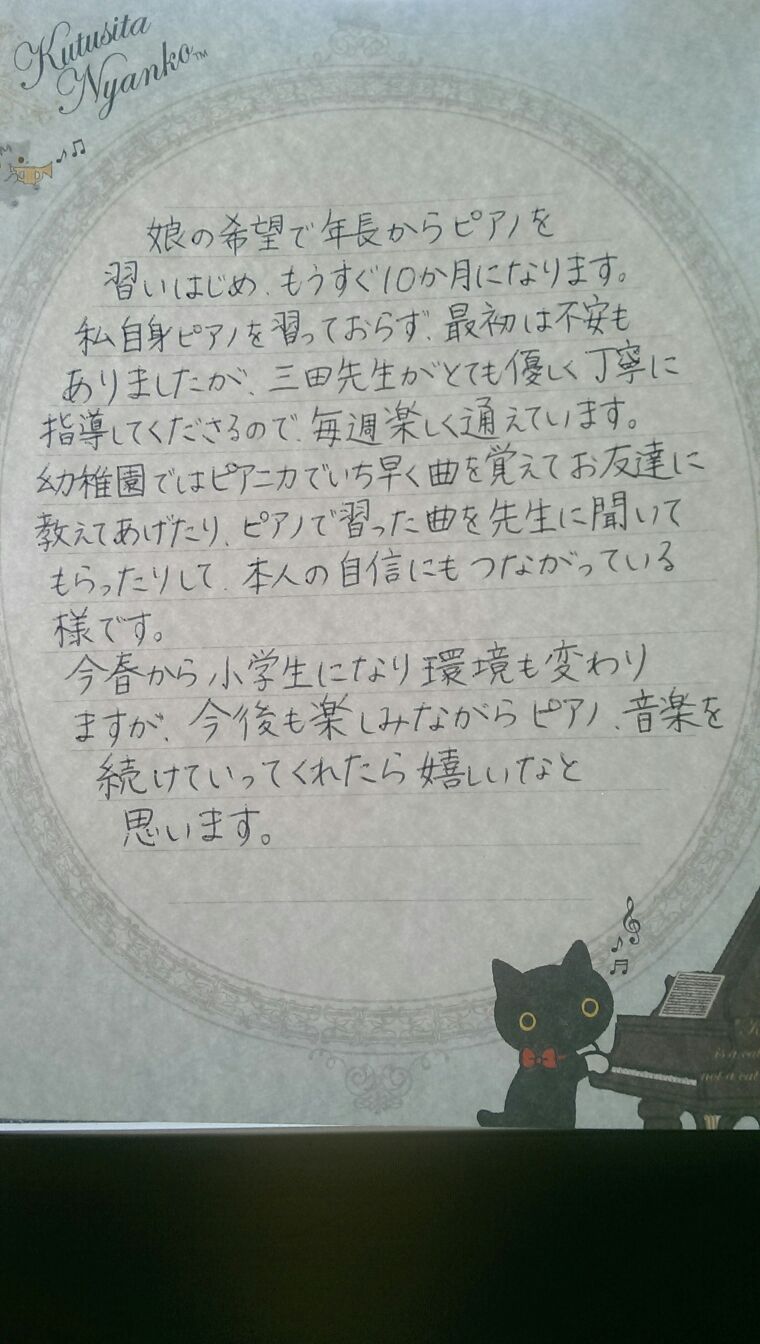 Kutusita
Nyanko™
娘の希望で年長からピアノを
習いはじめ、もうすぐ10か月になります。
私自身ピアノを習っておらず、最初は不安も
ありましたが、三田先生がとても優しく丁寧に
指導してくださるので、毎週楽しく通えています。
幼稚園ではピアニカでいち早く曲を覚えてお友達に
教えてあげたり、ピアノで習った曲を先生に聞いて
もらったりして、本人の自信にもつながっている
様です。
今春から小学生になり環境も変わり
ますが、今後も楽しみながらピアノ、音楽を
続けていってくれたら嬉しいなと
思います。
is a cat
not a cat